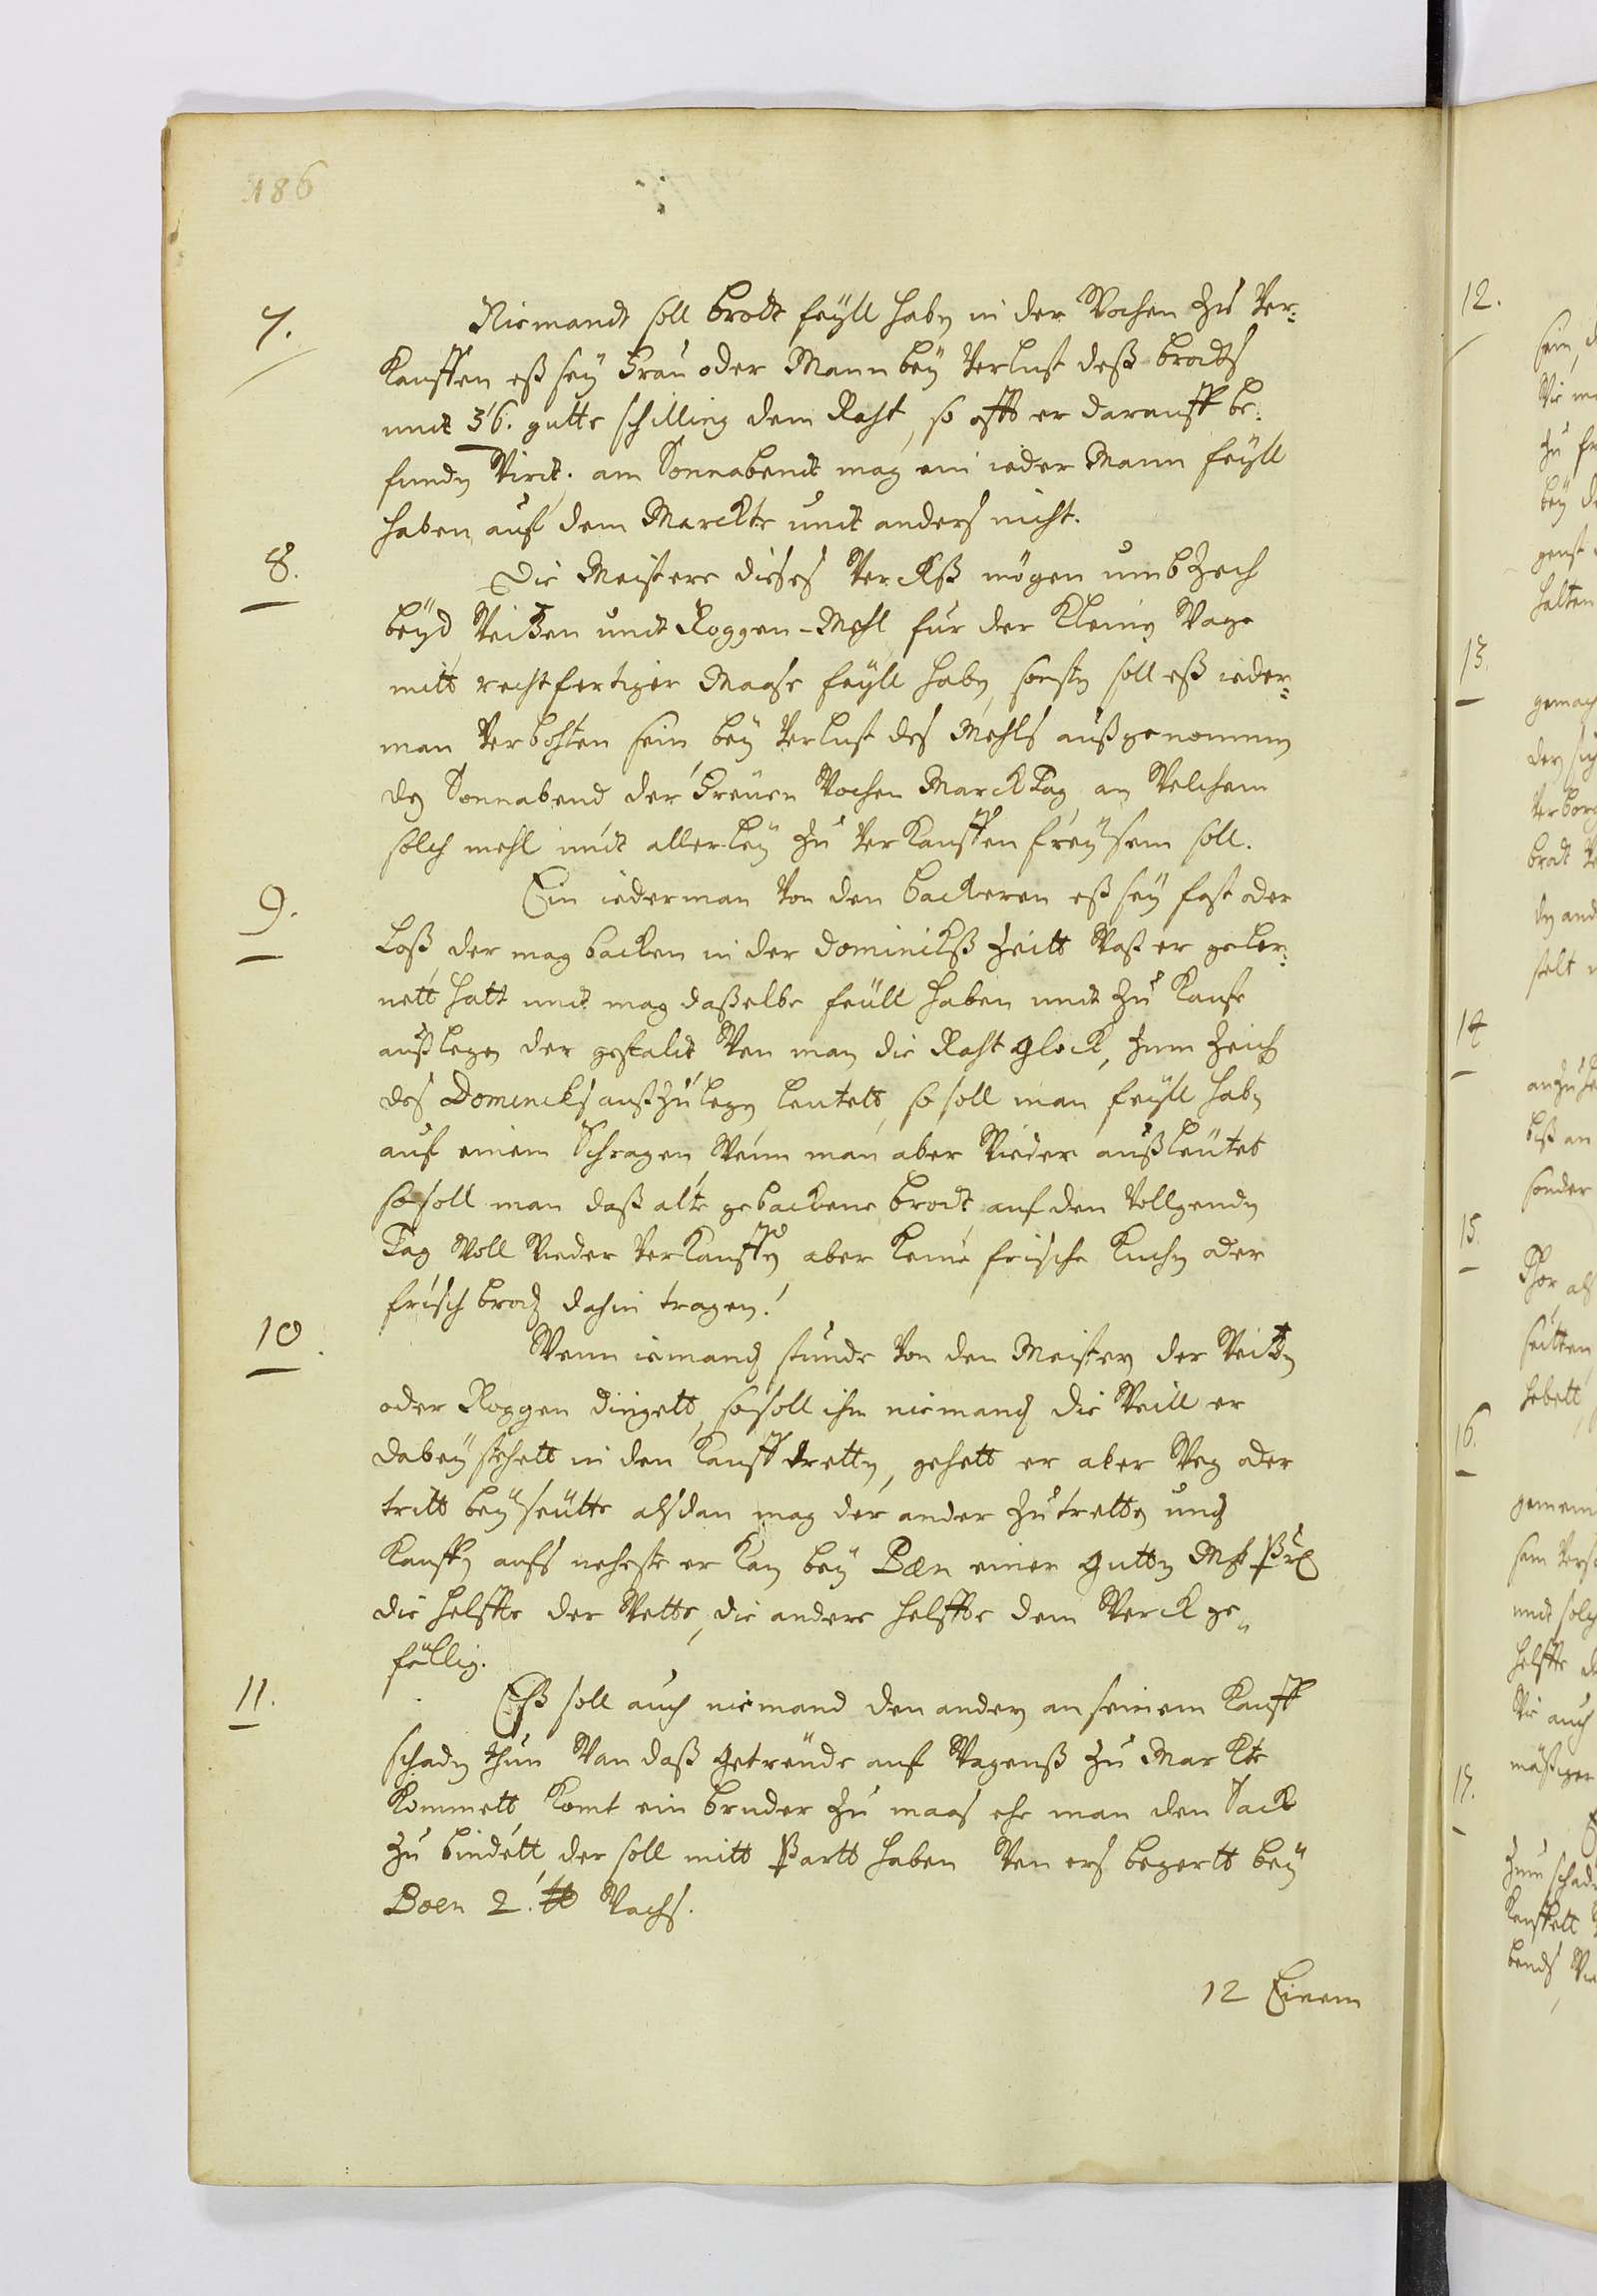 186
7. Niemandt soll brodt feyll haben in der Wochen zu ver-
kauffen eß sey Frau oder Mann bey verlust deß brodts
undt 36. gutte schilling dem Raht, so offt er darauff be-
funden wirdt. am Sonnabendt mag ein ieder Mann feyll
haben auf dem Marckte undt anders nicht.
8. Die Meistere dieses Werckß mögen umb Zech
beyd Weitzen undt Roggen-Mehl für der kleinen Wage
mitt rechtfertiger Maase feyll haben, sonsten soll eß ieder-
man verbohten sein bey verlust des Mehls außgenommen
den Sonnabend der Freuen Wochen Marck Tag an welchem
solch mehl undt allerley zu verkauffen frey sein soll.
9. Ein iederman von den backeren eß sey fast oder
loß der mag backen in der dominickß Zeitt waß er geler-
nett hatt undt mag daßelbe feüll haben undt zu kaufe
außlegen der gestaldt wen man die Raht glock, zum Zeichen
des Domincks außzulegen leutett, so soll man feyll haben
auf einem Schragen wenn man aber wieder außleutet
so soll man daß alte gebackene brodt auf den vollgenden
Tag woll wieder verkauffen aber keine frische kuchen oder
frisch brodt dahin tragen.
10. Wenn iemandt stunde von den Meistern der Weitzen
oder Roggen dingett, so soll ihm niemandt die weill er
dabey stehett in den kauff dretten, gehett er aber weg oder
tritt bey seütte alsdan mag der ander zutretten undt
kauffen aufs neheste er kan bey Pœn einer gutten Mk
die helffte der Wette, die andere helffte dem Werck ge-
fellig.
11. Eß soll auch niemand den andern an seinem kauff
schaden thun wan daß getreüde auf wagenß zu Markte
kommett, komt ein bruder zu maas ehe man den Sack
zu bindett, der soll mitt Partt haben wen ers begertt bey
Poen 2. ℔ Wachs.
12 Einem
12.
13.
14
15.
16.
17.